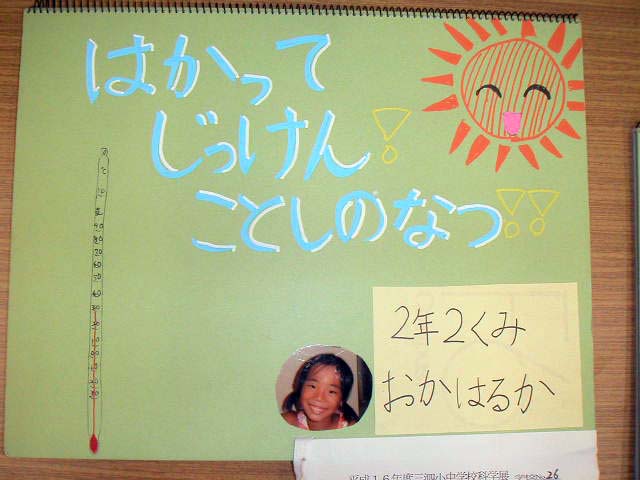 はかって
じっけん！
ことしのなつ！！
2年2くみ
おかはるか
平成16年度三泗小中学校科学展
26